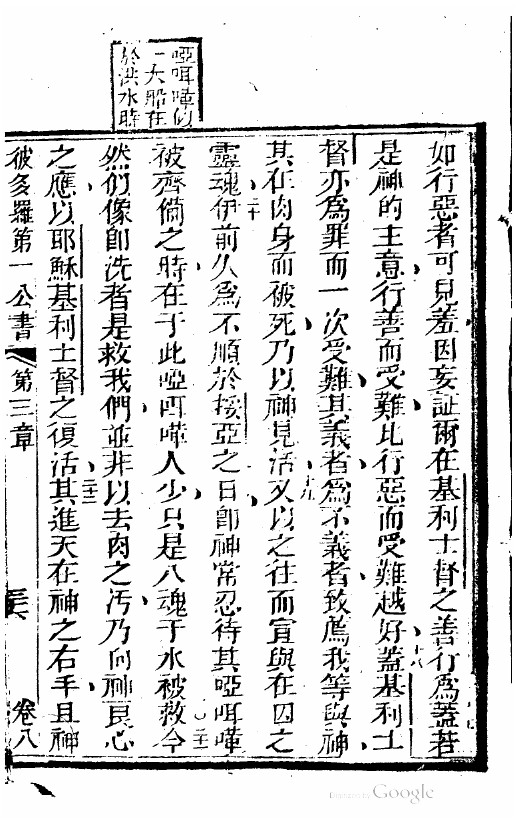 啞咡嘩似
一大船在
於洪水時
如行惡者可見羞因妄証爾在基利士督之善行爲蓋若
是神的主意行善而受難比行惡而受難越好蓋基利士
督亦爲罪而一次受難其義者爲不義者致薦我等與神
其在肉身而被死乃以神見活又以之往而宣與在囚之
靈魂伊前久爲不順於挼亞之日卽神常忍待其啞咡嘩
被齊備之時在于此啞咡嘩人少只是八魂于水被救今
然們像卽洗者是救我們並非以去肉之污乃向神良心
之應以耶穌基利士督之復活其進天在神之右手且神
彼多羅第一公書
第三章
卷八
十八
十九
二十
二十一
二十二
Digitized by Google